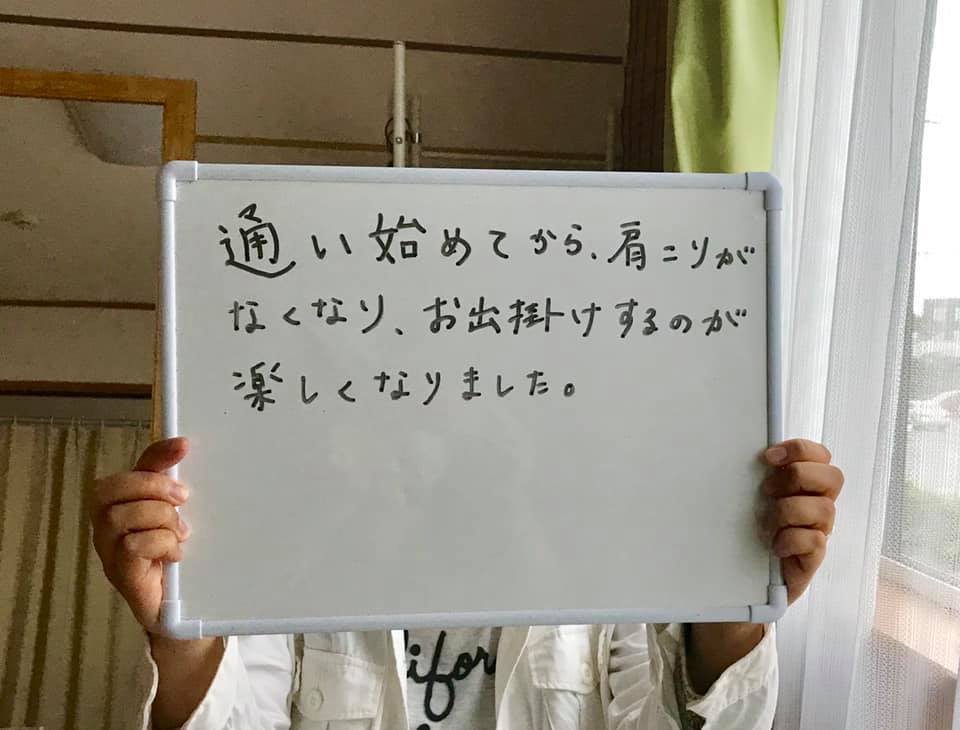 通い始めてから、肩こりが
なくなり、お出掛けするのが
楽しくなりました。
ifor